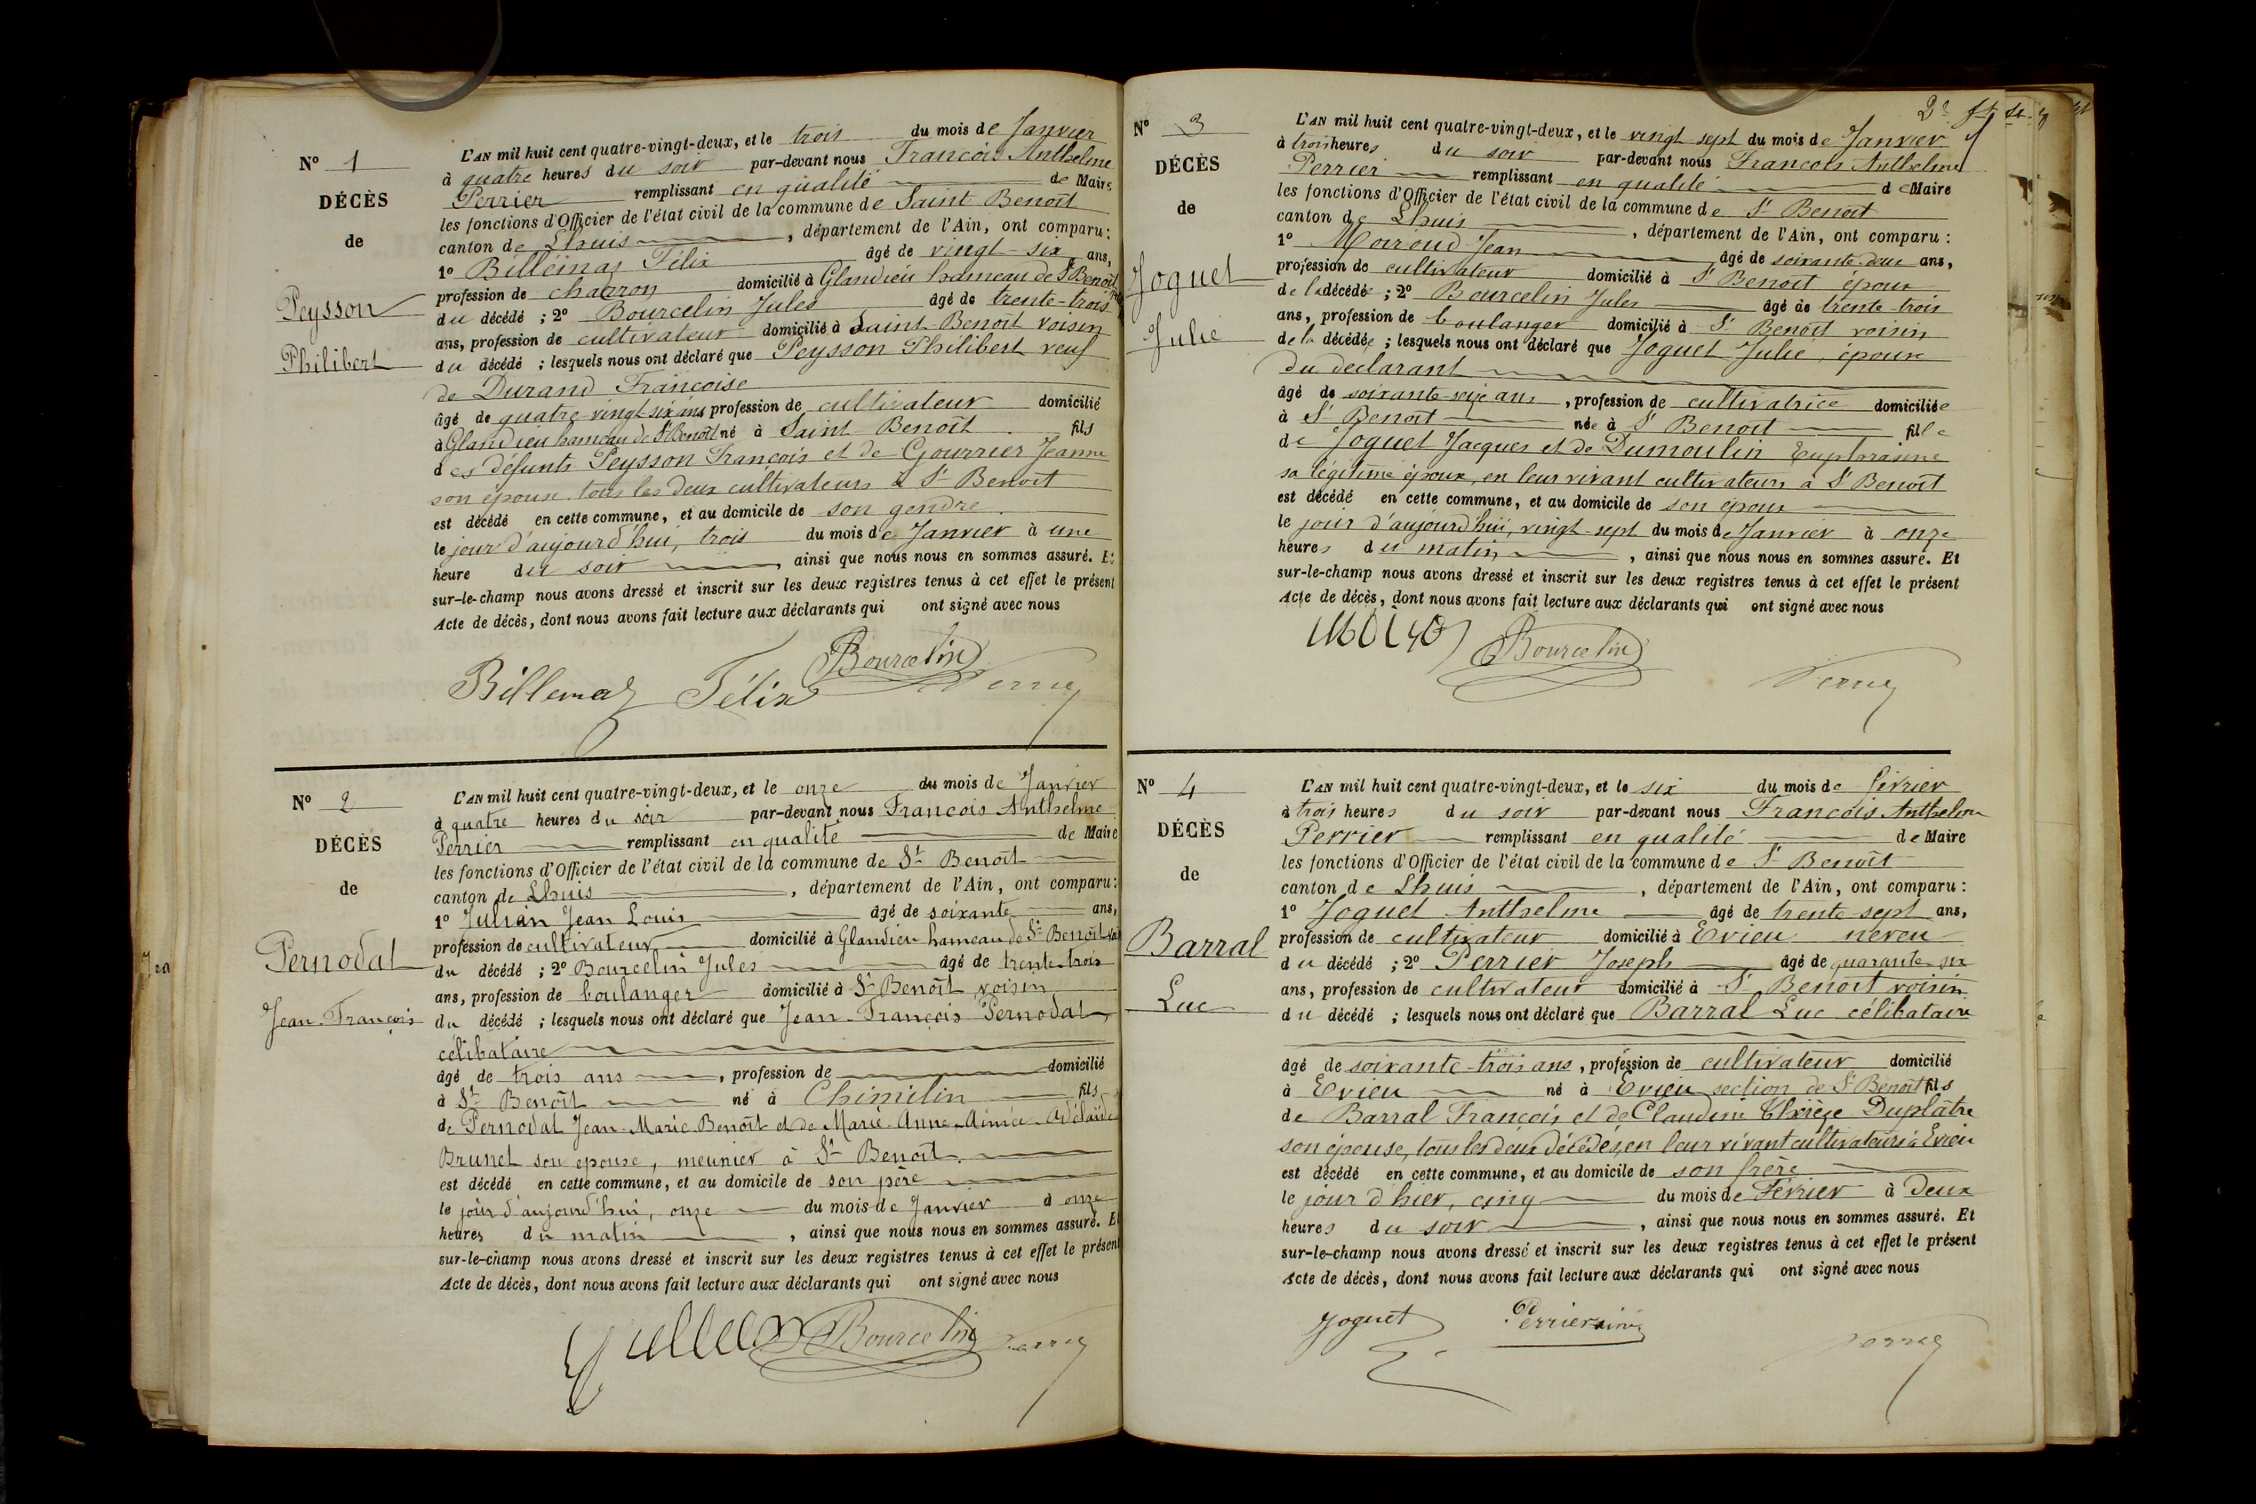 N° 1
DÉCÈS
de
Peysson
Philibert
L'AN mil huit cent quatre-vingt-deux, et le trois du mois de Janvier
à quatre heures du soir par-devant nous François Anthelme
Perrier remplissant en qualité de Maire
les fonctions d'Officier de l'état civil de la commune de Saint Benoît
canton de Lhuis, département de l'Ain, ont comparu :
1° Billémaz Félix âgé de vingt-six ans,
profession de charron domicilié à Glandieu hameau de St Benoît
du décédé ; 2° Bourcelin Jules âgé de trente-trois
ans, profession de cultivateur domicilié à Saint-Benoît voisin
du décédé ; lesquels nous ont déclaré que Peysson Philibert veuf
de Durand Françoise
âgé de quatre-vingt six ans profession de cultivateur domicilié
à Glandieu hameau de St Benoît né à Saint-Benoît fils
des défunts Peysson François et de Gourrier Jeanne
son épouse tous les deux cultivateurs à St Benoît
est décédé en cette commune, et au domicile de son gendre.
le jour d'aujourd'hui, trois du mois de Janvier à une
heure du soir, ainsi que nous nous en sommes assuré. Et
sur-le-champ nous avons dressé et inscrit sur les deux registres tenus à cet effet le présent
Acte de décès, dont nous avons fait lecture aux déclarants qui ont signé avec nous
Billemaz Félix Bourcelin Perrier
N° 2
DÉCÈS
de
Pernodat
Jean-François
L'AN mil huit cent quatre-vingt-deux, et le onze du mois de Janvier
à quatre heures du soir par-devant nous François Anthelme
Perrier remplissant en qualité de Maire
les fonctions d'Officier de l'état civil de la commune de St Benoît
canton de Lhuis, département de l'Ain, ont comparu :
1° Julian Jean Louis âgé de soixante ans,
profession de cultivateur, domicilié à Glandieu hameau de St Benoît
du décédé ; 2° Bourcelin Jules âgé de trente-trois
ans, profession de boulanger domicilié à St Benoît voisin
du décédé ; lesquels nous ont déclaré que Jean-François Pernodat,
célibataire
âgé de trois ans, profession de domicilié
à St Benoît né à Chimilin fils
de Pernodat Jean-Marie-Benoît et de Marie-Anne-Aimée-Adélaïde
Brunet son épouse, meunier à St Benoît.
est décédé en cette commune, et au domicile de son père
le jour d'aujourd'hui, onze du mois de Janvier à onze
heures du matin, ainsi que nous nous en sommes assuré. Et
sur-le-champ nous avons dressé et inscrit sur les deux registres tenus à cet effet le présent
Acte de décès, dont nous avons fait lecture aux déclarants qui ont signé avec nous
Bourcelin Perrier
N° 3
DÉCÈS
de
Joguet
Julie
L'AN mil huit cent quatre-vingt-deux, et le vingt sept du mois de Janvier
à trois heures du soir par-devant nous François Anthelme
Perrier remplissant en qualité de Maire
les fonctions d'Officier de l'état civil de la commune de St Benoît
canton de Lhuis, département de l'Ain, ont comparu :
1° Jean âgé de soixante-deux ans,
profession de cultivateur domicilié à St Benoît époux
de la décédé ; 2° Bourcelin Jules âgé de trente-trois
ans, profession de boulanger domicilié à St Benoît voisin
de la décédée ; lesquels nous ont déclaré que Joguet Julie, épouse
du déclarant
âgé de soixante-seize ans, profession de cultivatrice domiciliée
à St Benoît née à St Benoît fille
de Joguet Jacques et de Dumoulin Euphrasine
sa légitime épouse, en leur vivant cultivateurs à St Benoît
est décédé en cette commune, et au domicile de son époux
le jour d'aujourd'hui, vingt-sept du mois de Janvier à onze
heures du matin, ainsi que nous nous en sommes assuré. Et
sur-le-champ nous avons dressé et inscrit sur les deux registres tenus à cet effet le présent
Acte de décès, dont nous avons fait lecture aux déclarants qui ont signé avec nous
Bourcelin Perrier
N° 4
DÉCÈS
de
Barral
Luc
L'AN mil huit cent quatre-vingt-deux, et le six du mois de Février
à trois heures du soir par-devant nous François Anthelme
Perrier remplissant en qualité de Maire
les fonctions d'Officier de l'état civil de la commune de St Benoît
canton de Lhuis, département de l'Ain, ont comparu :
1° Joguet Anthelme âgé de trente-sept ans,
profession de cultivateur domicilié à Evieu neveu
du décédé ; 2° Perrier Joseph âgé de quarante-six
ans, profession de cultivateur domicilié à St Benoît voisin
du décédé ; lesquels nous ont déclaré que Barral Luc célibataire
âgé de soixante-trois ans, profession de cultivateur domicilié
à Evieu né à Evieu section de St Benoît fils
de Barral François et de Claudine Thièze Duplâtre
son épouse, tous les deux décédés, en leur vivant cultivateurs à Evieu
est décédé en cette commune, et au domicile de son frère
le jour d'hier, cinq du mois de Février à deux
heures du soir, ainsi que nous nous en sommes assuré. Et
sur-le-champ nous avons dressé et inscrit sur les deux registres tenus à cet effet le présent
Acte de décès, dont nous avons fait lecture aux déclarants qui ont signé avec nous
Joguet Perrier Perrier